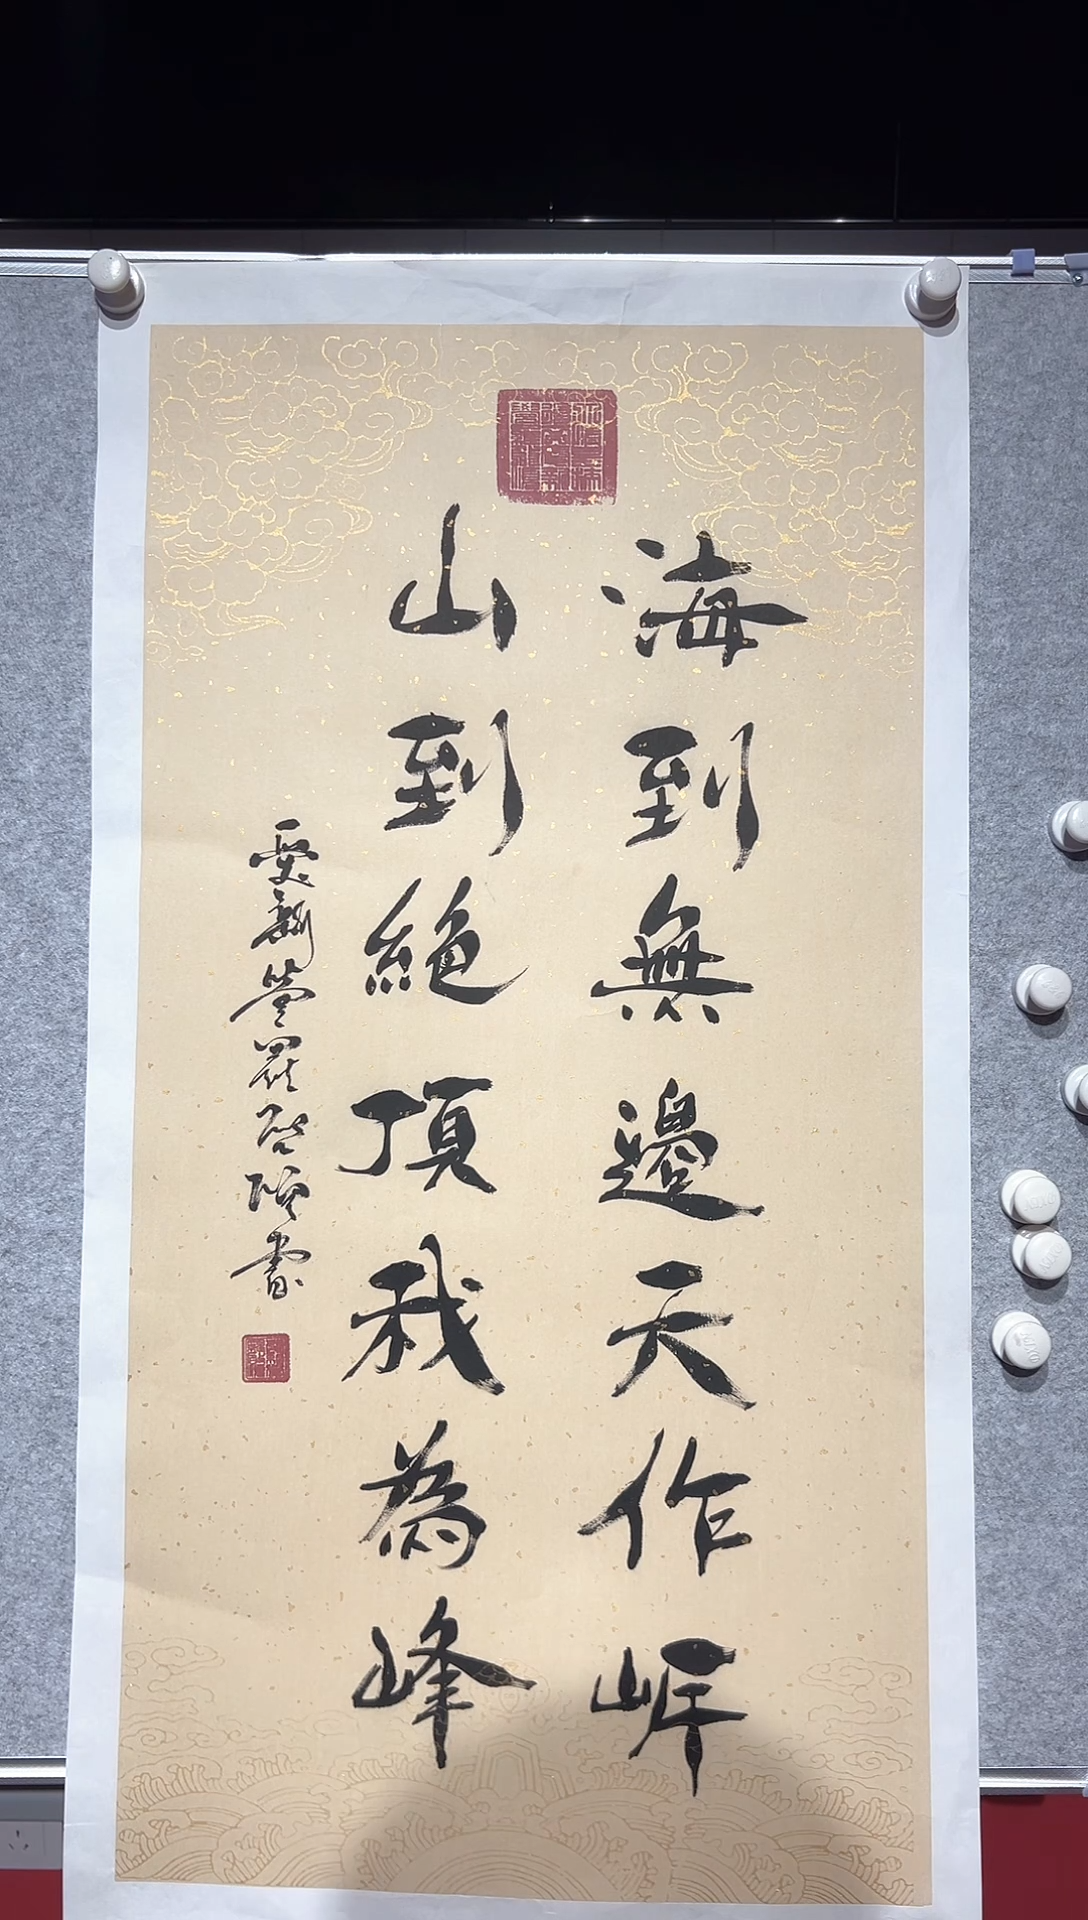 海到無邊天作岸
山到絕頂我為峰
愛新覺羅啓驤書